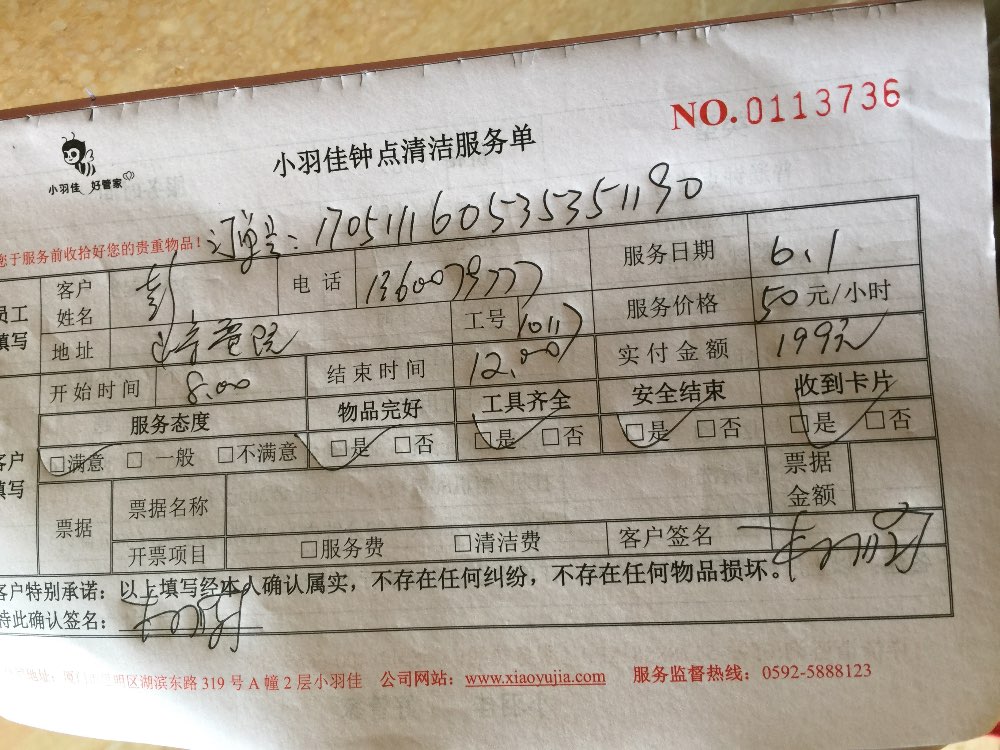 NO.0113736
小羽佳钟点清洁服务单
小羽佳 好管家
您于服务前收拾好您的贵重物品！ 订单号：170511160535351190
员工填写 客户姓名 彭 电话 服务日期 6.1
地址 工号 服务价格 50元/小时
开始时间 8:00 结束时间 12:00 实付金额 199元
服务态度 物品完好 工具齐全 安全结束 收到卡片
客户填写 □满意 □一般 □不满意 □是 □否 □是 □否 □是 □否 □是 □否
票据 票据名称 票据金额
开票项目 □服务费 □清洁费 客户签名
客户特别承诺：以上填写经本人确认属实，不存在任何纠纷，不存在任何物品损坏。
特此确认签名：
公司地址：厦门思明区湖滨东路319号A幢2层小羽佳 公司网站：www.xiaoyujia.com 服务监督热线：0592-5888123